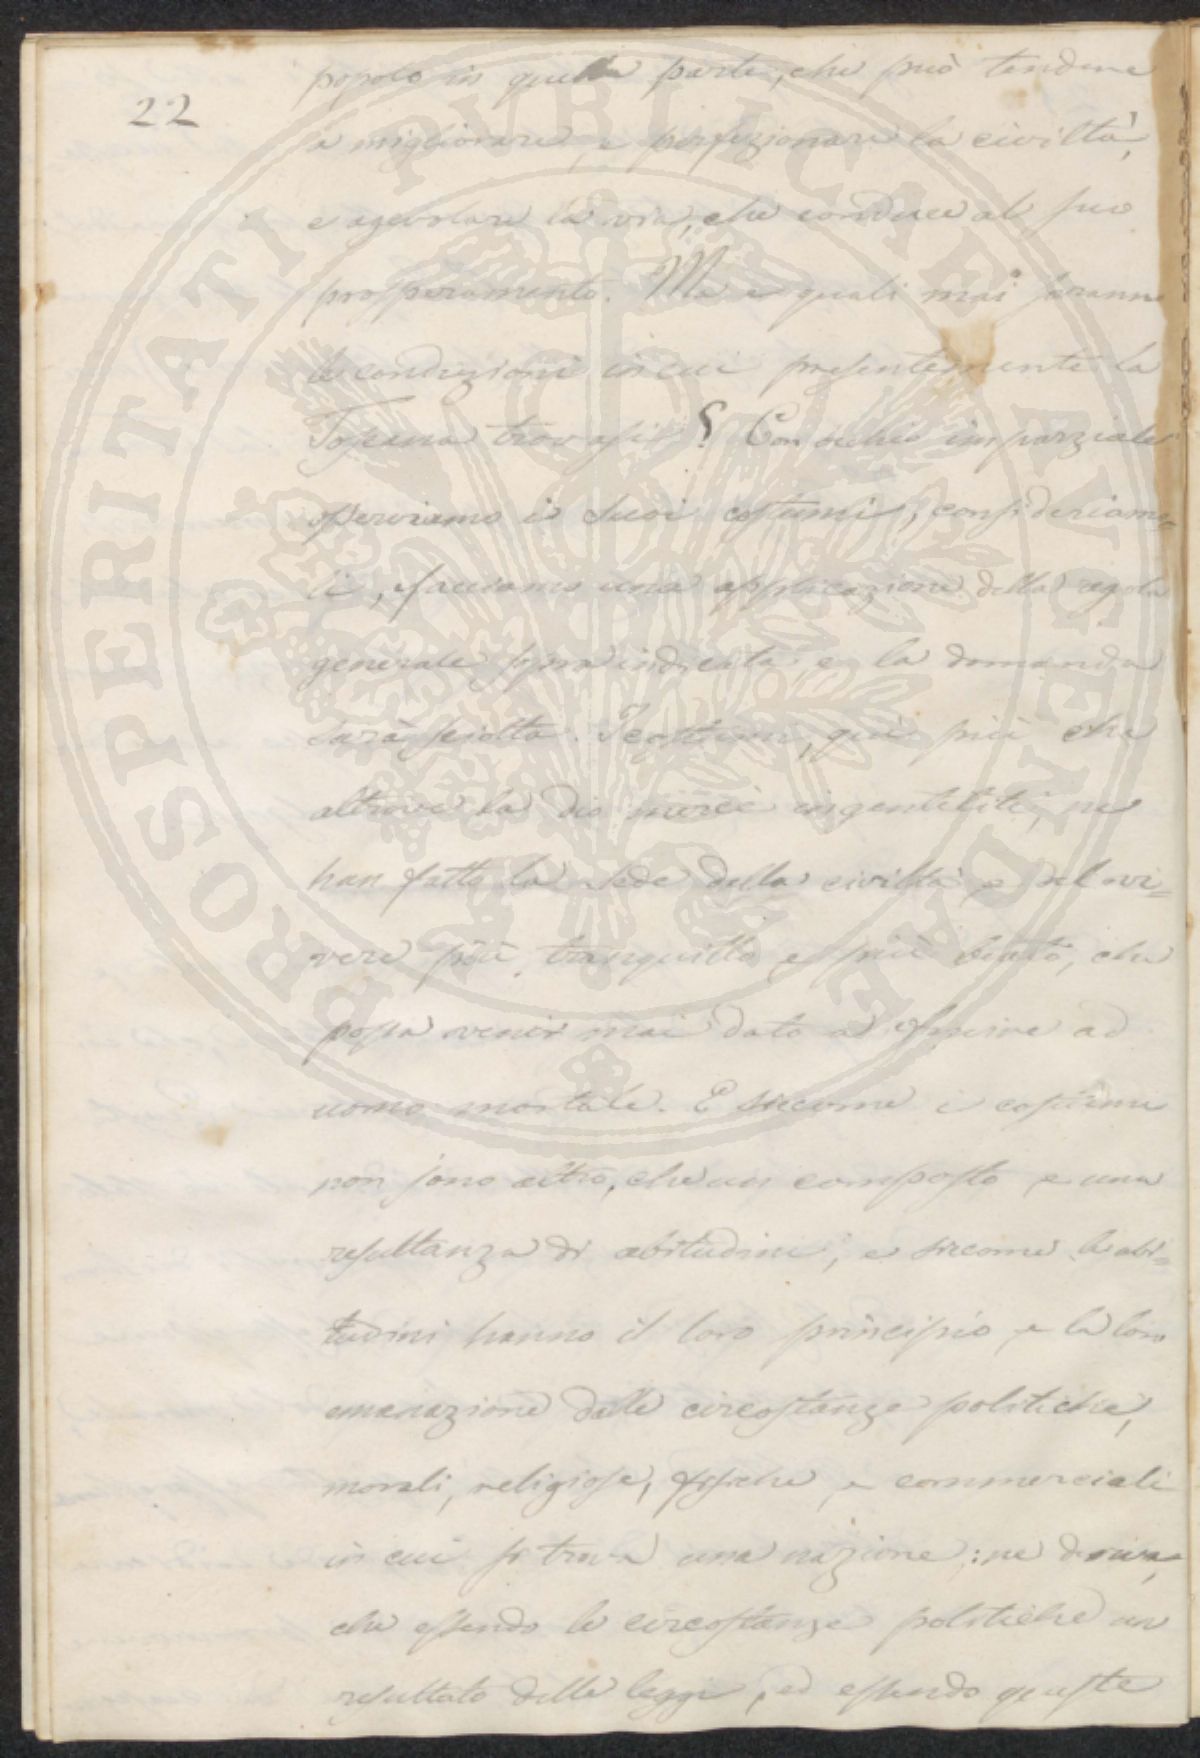 22
popolo in quella parte, che può tendere
a migliorare, e perfezionare la civiltà,
e agevolare la via, che conduce al suo
prosperamento. Ma e quali mai saranno
le condizioni in cui presentemente la
Toscana trovasi? Con occhio imparziale
osserviamo i suoi costumi, consideriamo-
li, e facciamo una applicazione della regola
generale sopra indicata, e la domanda
sarà sciolta. I costumi, qui più che
altrove la dio mercè ingentiliti, ne
han fatto la sede della civiltà e del vi=
vere più tranquillo e più beato, che
possa venir mai dato a fruire ad
uomo mortale. E siccome i costumi
non sono altro, che un composto e una
resultanza di abitudini, e siccome le abi=
tudini hanno il loro principio e la loro
emanazione dalle circostanze politiche,
morali, religiose, fisiche, e commerciali
in cui si trova una nazione; ne deriva,
che essendo le circostanze politiche un
resultato delle leggi, ed essendo queste
PROSPERITATI PVBLICAE AVGENDAE